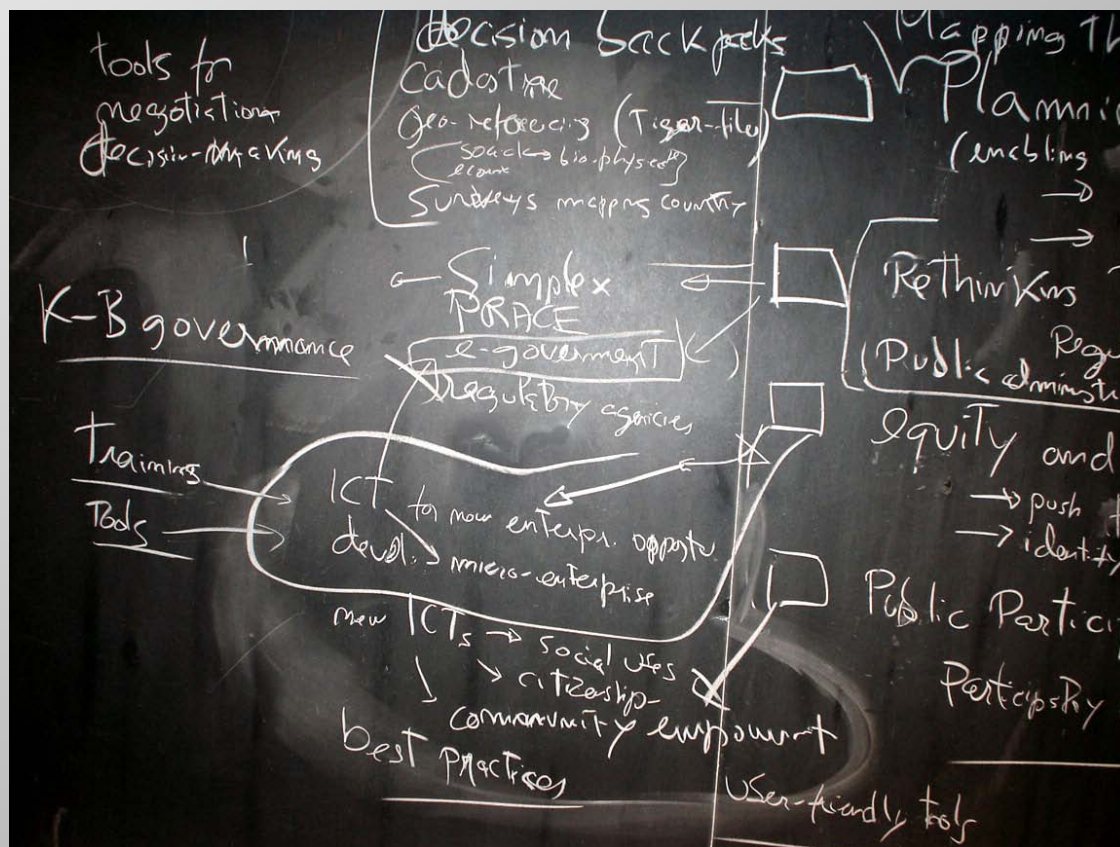 tools for
negotiation
decision-making
K-B governance
Training
Tools
decision backpacks
cadastre
Geo-referencing (Tiger-file)
social bio-physical
econ
Surveys mapping country
Simplex
PRACE
e-government
regulatory agencies
ICT for new enterpr. opportu.
devel. micro-enterprise
new ICTs → social uses
citizenship
community empowerment
best practices
Mapping Th
Planni
(enabling
Rethinking
Public administ
equity and
→ push
→ identity
Public Partici
Participatory
User-friendly tools